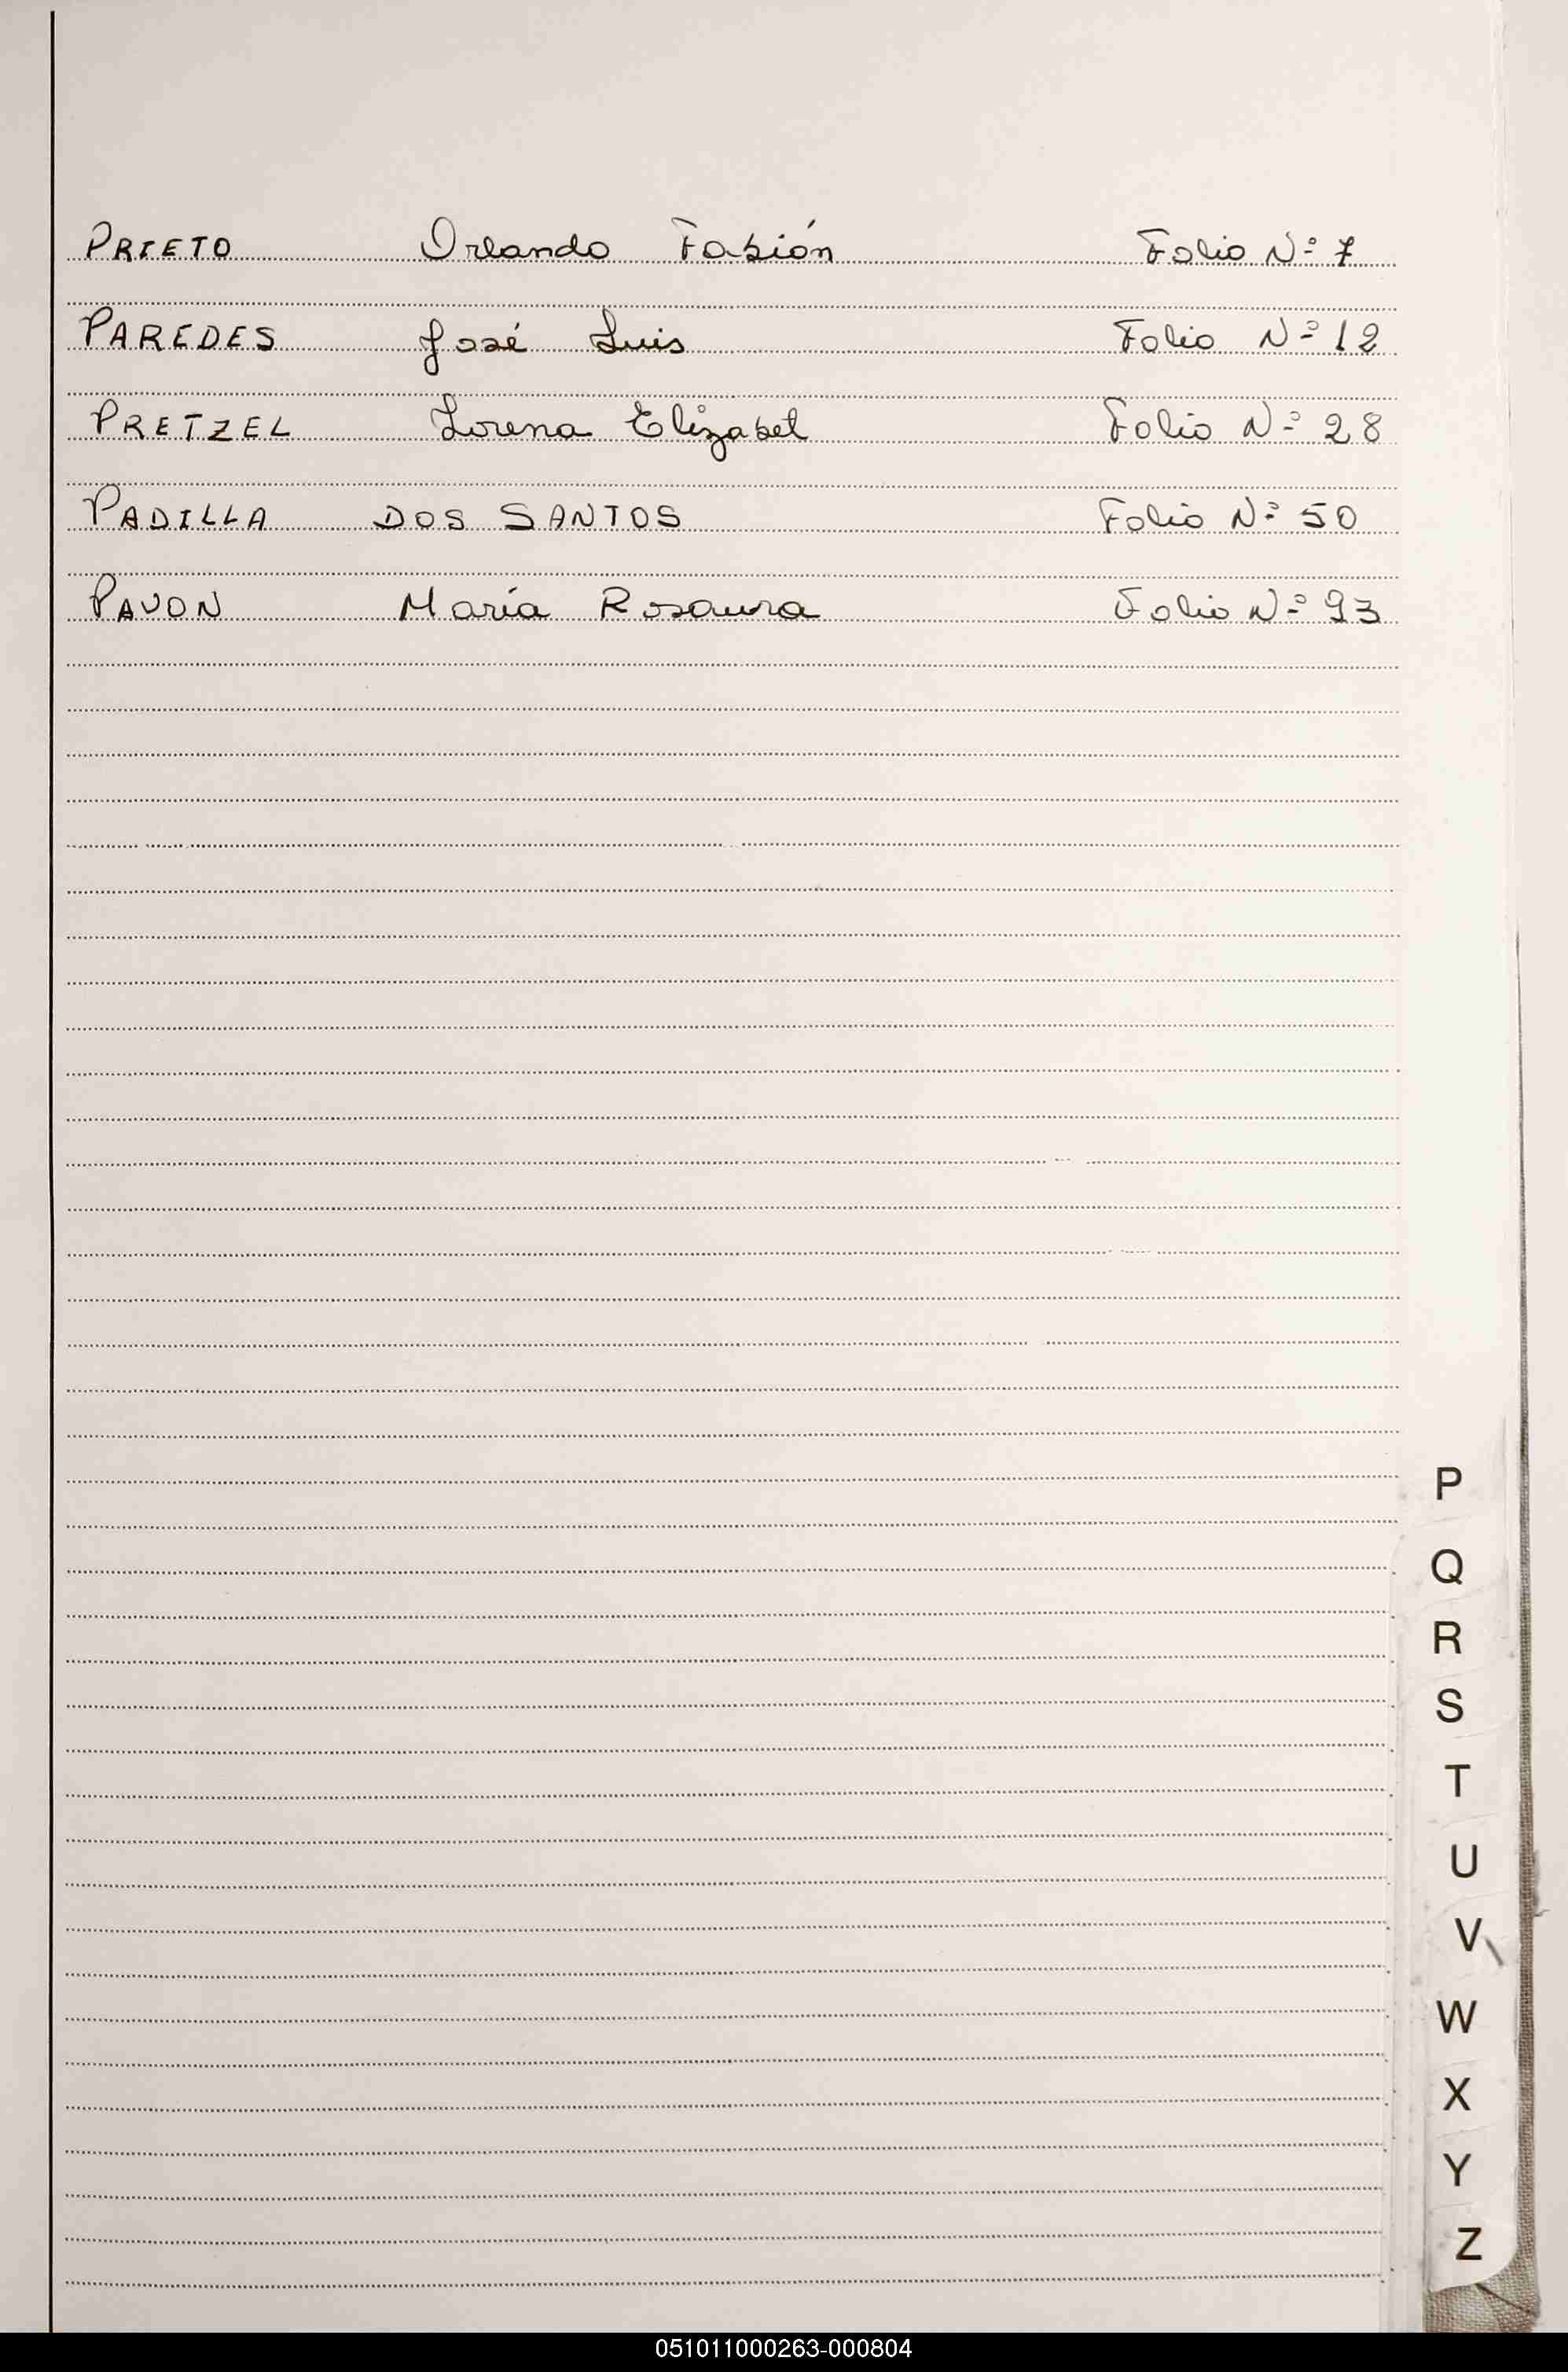 PRIETO Orlando Fabión Folio Nº 7
PAREDES José Luis Folio Nº 12
PRETZEL Lorena Elizabet Folio Nº 28
PADILLA DOS SANTOS Folio Nº 50
PAVON María Rosaura Folio Nº 93
P
Q
R
S
T
U
V
W
X
Y
Z
051011000263-000804